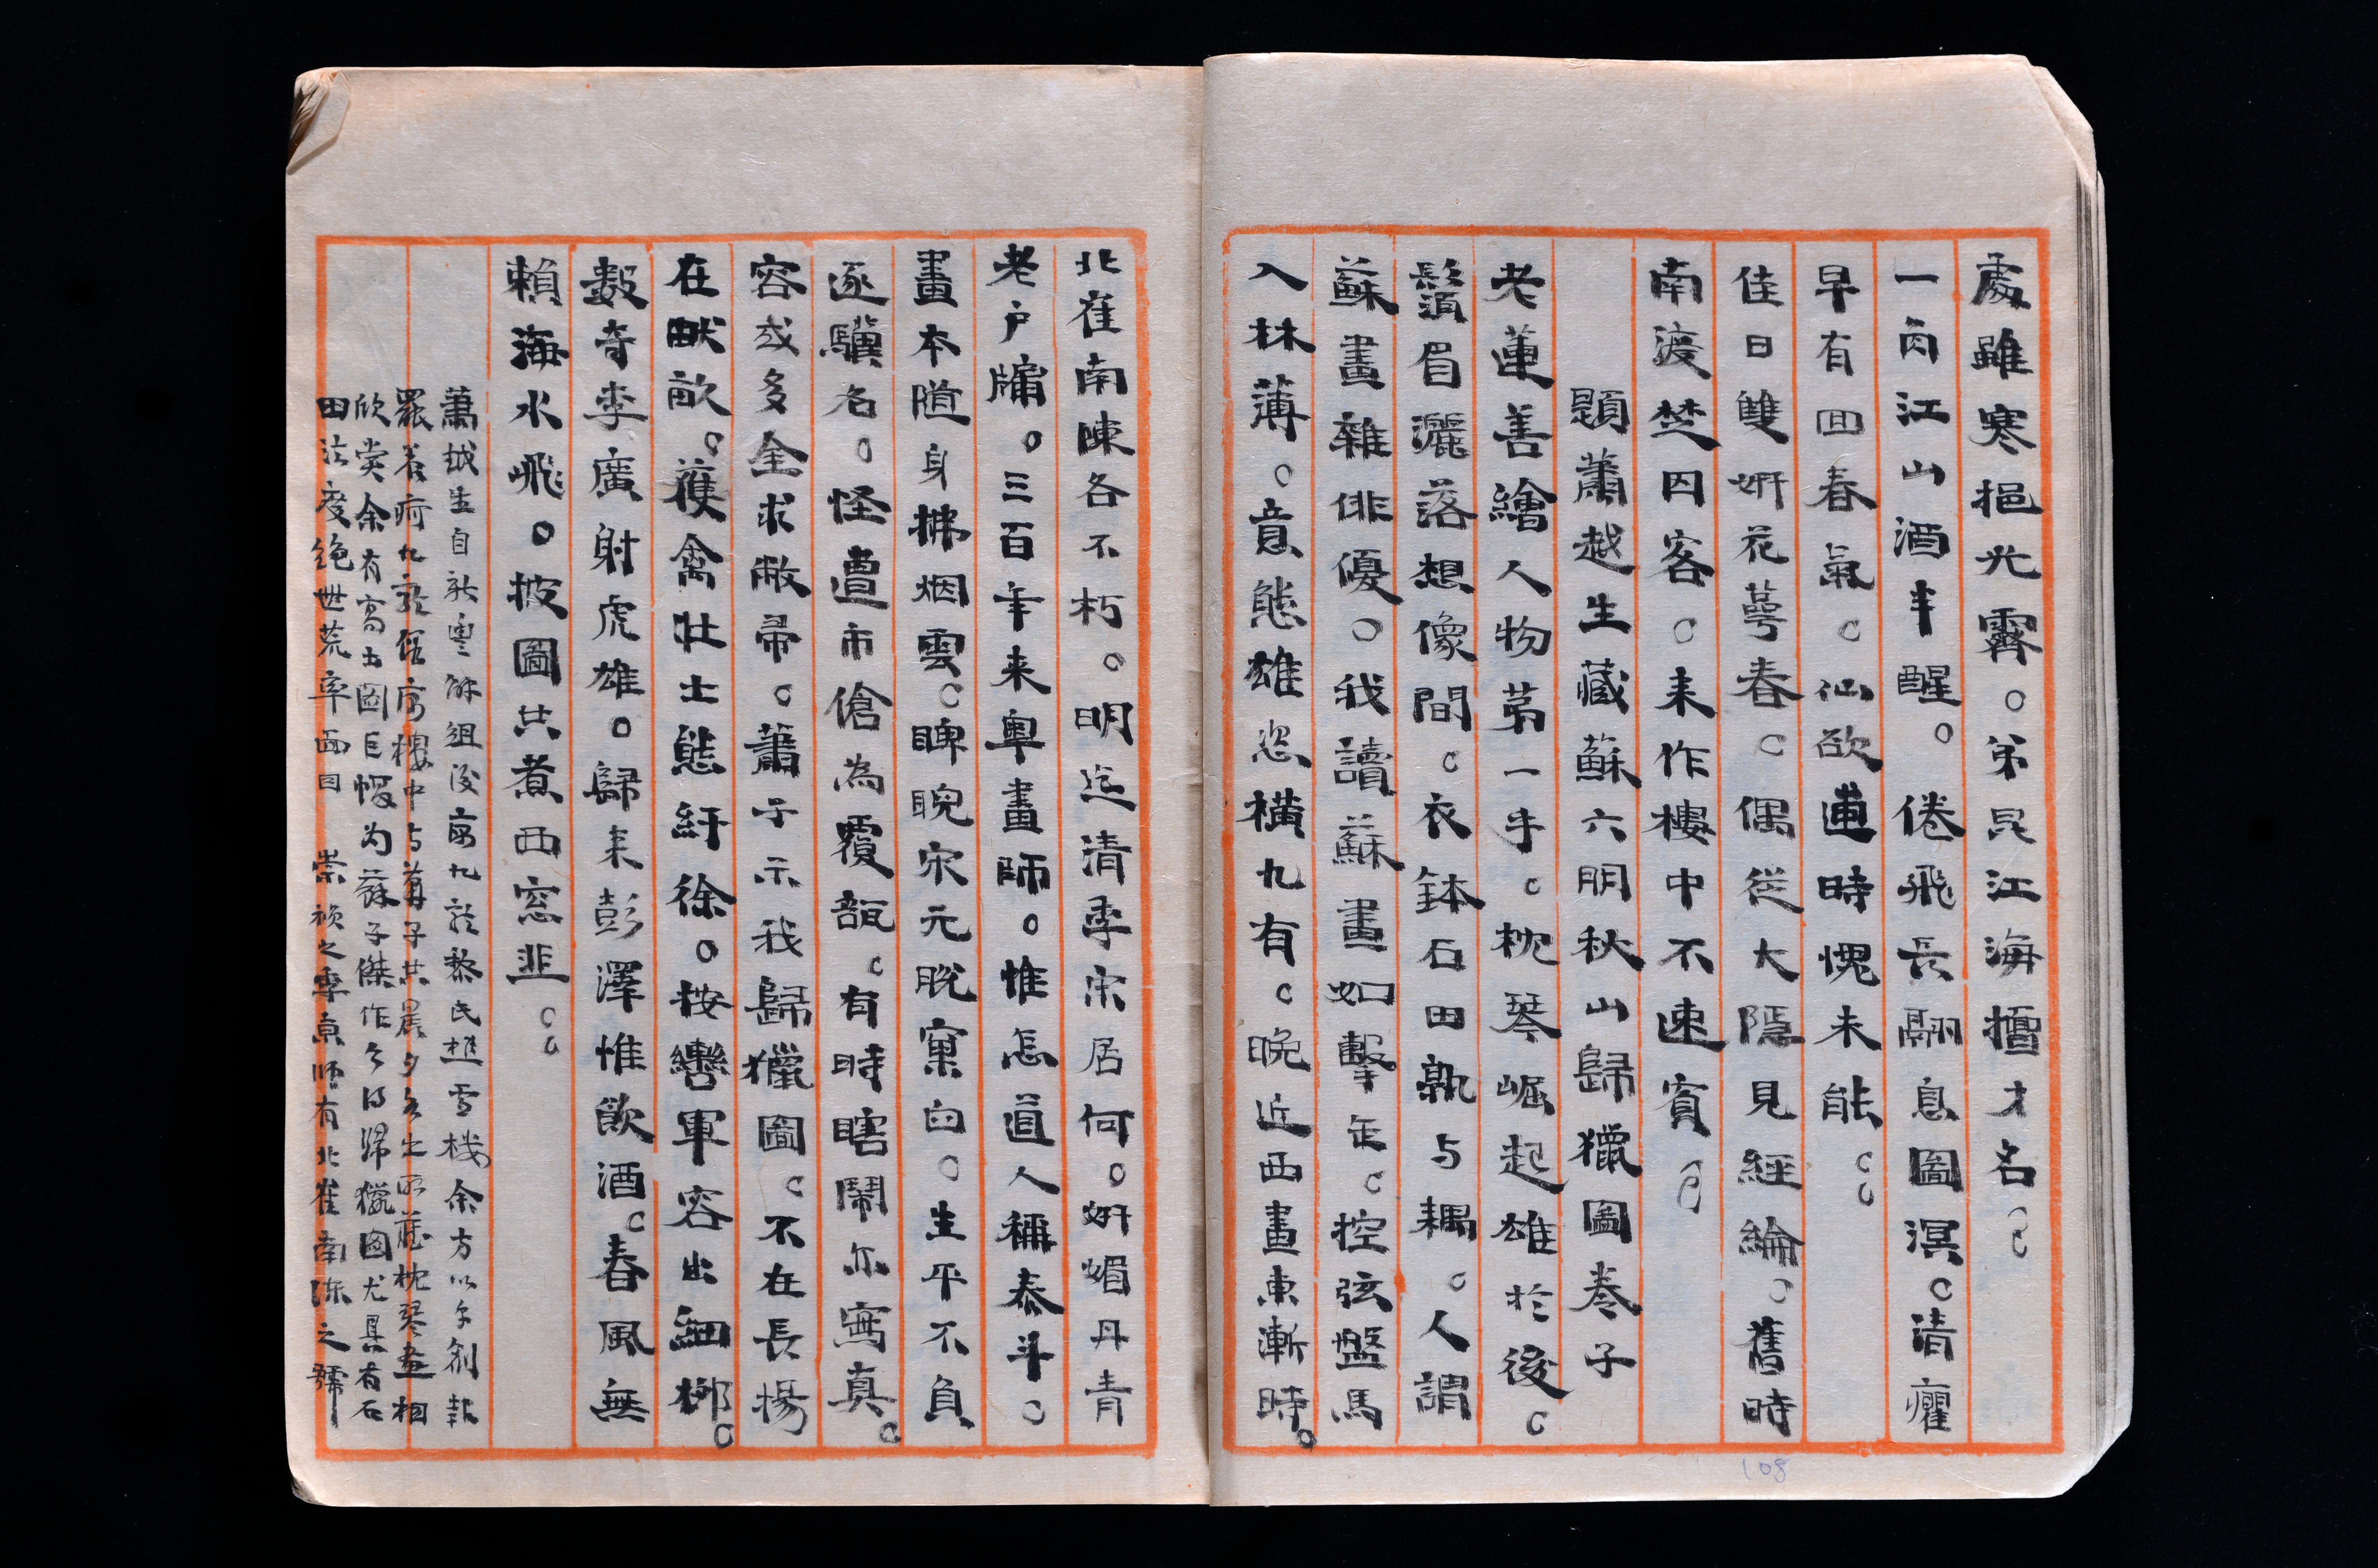 處雖寒挹光霽。弟昆江海擅才名。
一角江山酒半醒。倦飛長翮息圖溟。清癯
早有回春氣。仙欲逋時愧未能。
佳日雙妍花萼春。偶從大隱見經綸。舊時
南渡楚囚客。来作樓中不速賓。
題蕭越生藏蘇六朋秋山歸獵圖卷子
老蓮善繪人物苐一手。枕琴崛起雄於後。
鬚眉灑落想像間。衣鉢石田孰与耦。人謂
蘇畫雜俳優。我讀蘇畫如擊缶。控弦盤馬
入林薄。意態雄恣横九有。晚近西畫東漸時。
北崔南陳各不朽。明迄清季宋居何。妍媚丹青
老户牖。三百年来粤畫師。惟怎道人稱泰斗。
畫本隨身拂烟雲。睥睨宋元脱窠臼。生平不負
逐驥名。怪遭市傖為覆瓿。有時瞎鬧尔寫真。
容或多金求敝帚。蕭子示我歸獵圖。不在長楊
在畎畝。獲禽壮士態紆徐。按轡軍容出細柳。
數奇李廣射虎雄。歸来彭澤惟飲酒。春風無
賴海水飛。披圖共煮西窓韭。
蕭越生自新豐解組後寓九龍黎民樵雪楼余方以字創報
罷养疴九龍侄寓樓中与蕭子共晨夕主生所藏枕琴畫相
欣赏余有高士圖巨幀为蘇子傑作今得歸獵图尤具有石
田法度绝世荒率面目 崇祯之季京师有北崔南陈之號
108